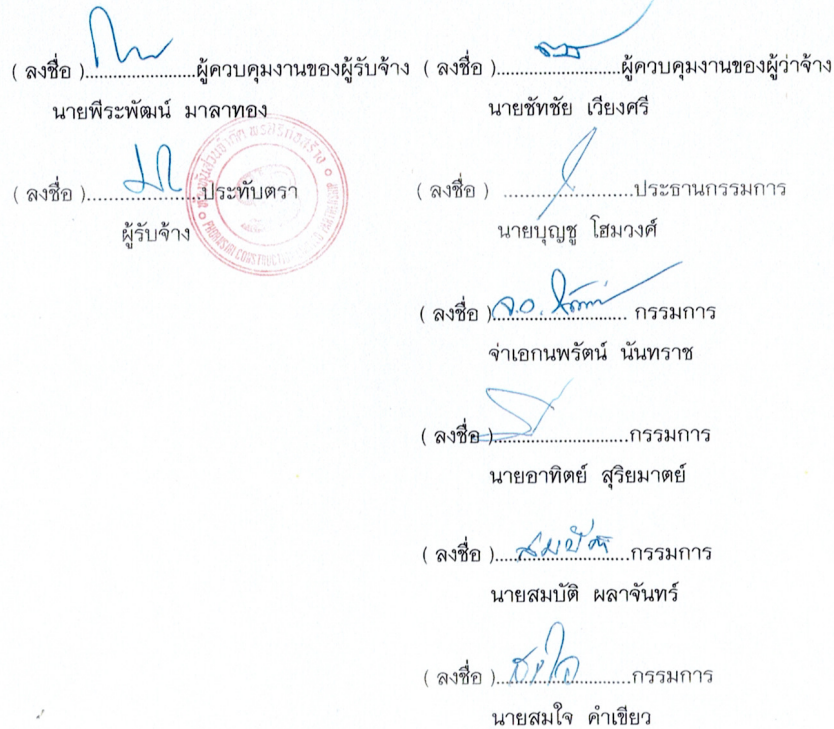 ( ลงชื่อ )........................ผู้ควบคุมงานของผู้รับจ้าง
นายพีระพัฒน์ มาลาทอง
( ลงชื่อ )........................ประทับตรา
ผู้รับจ้าง
( ลงชื่อ )...........................ผู้ควบคุมงานของผู้ว่าจ้าง
นายชัทชัย เวียงศรี
( ลงชื่อ ) ............................ประธานกรรมการ
นายบุญชู โฮมวงศ์
( ลงชื่อ )จ.อ. ............................. กรรมการ
จ่าเอกนพรัตน์ นันทราช
( ลงชื่อ )............................กรรมการ
นายอาทิตย์ สุริยมาตย์
( ลงชื่อ )....สมบัติ....กรรมการ
นายสมบัติ ผลาจันทร์
( ลงชื่อ )....สมใจ....กรรมการ
นายสมใจ คำเขียว